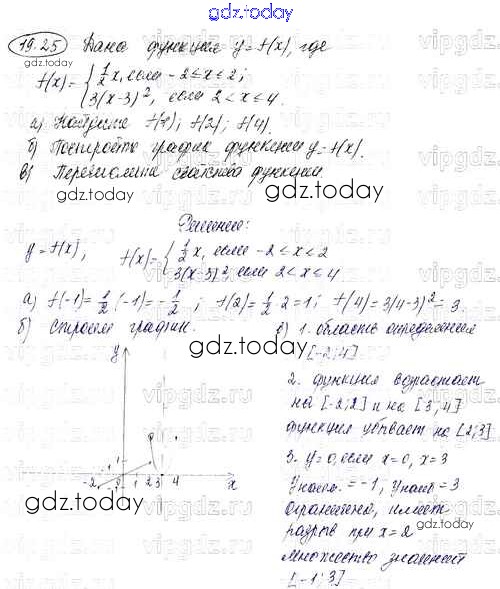 gdz.today
19.25 Дана функция y=f(x), где
f(x)= { 1/2 x, если -2≤x≤2;
3(x-3)², если 2<x≤4.
а) Найдите f(-1); f(2); f(4).
б) Постройте график функции y=f(x).
в) Перечислите свойства функции.
gdz.today
Решение:
y=f(x), f(x)= { 1/2 x, если -2≤x≤2
3(x-3)², если 2<x≤4
а) f(-1)= 1/2 ·(-1)= -1/2 ; f(2)= 1/2 ·2=1; f(4)=3(4-3)²=3.
б) Строим график.
gdz.today
в) 1. область определения
[-2;4]
2. функция возрастает
на [-2;2] и на [3,4]
функция убывает на [2;3]
3. y=0, если x=0, x=3
yнаим. = -1, yнаиб = 3
ограниченная, имеет
разрыв при x=2
множество значений
[-1;3]
y
-2 -1 0 1 2 3 4 x
gdz.today